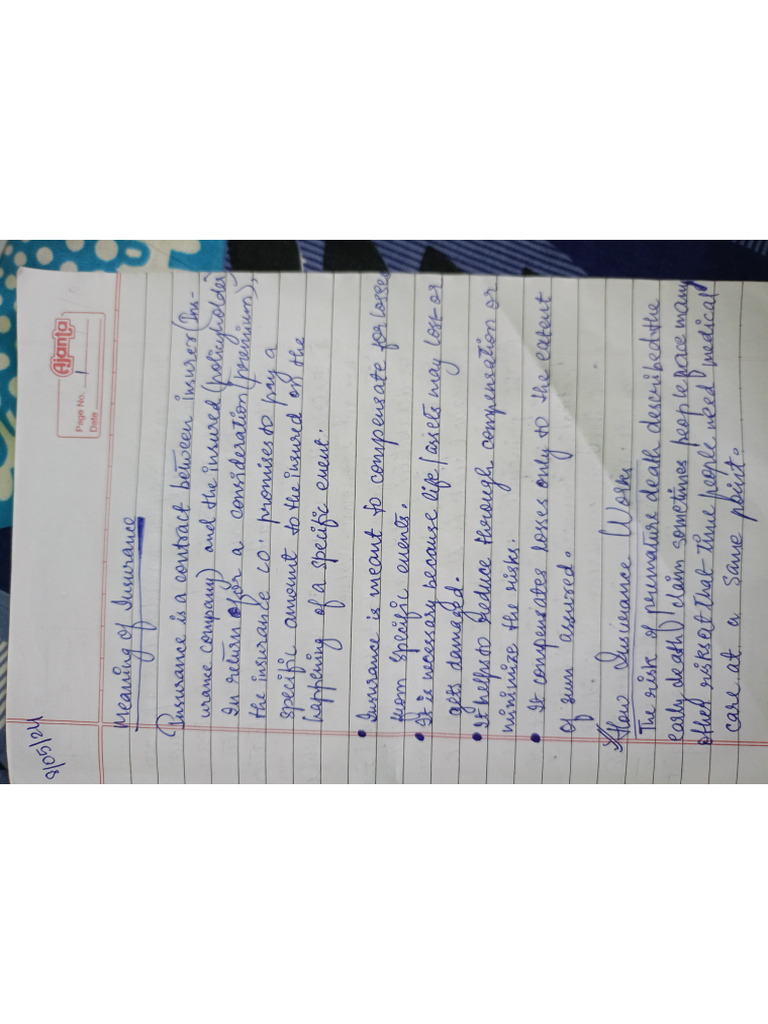 Ajanta
Page No. 1
Date
8/05/24
Meaning of Insurance
Insurance is a contract between insurer (Ins-
urance company) and the insured (policyholder
In return of for a consideration (premium),
the insurance co. promises to pay a
specific amount to the insured on the
happening of a specific event.
• Insurance is meant to compensate for losses
from specific events.
• It is necessary because life/assets may lost or
gets damaged.
• It helps to reduce through compensation or
minimize the risks.
• It compensates losses only to the extent
of sum assured.
How Insurance Works
The risk of premature death described the
early death) claim sometimes people face many
other risks at that time people need medical
care at a same point.